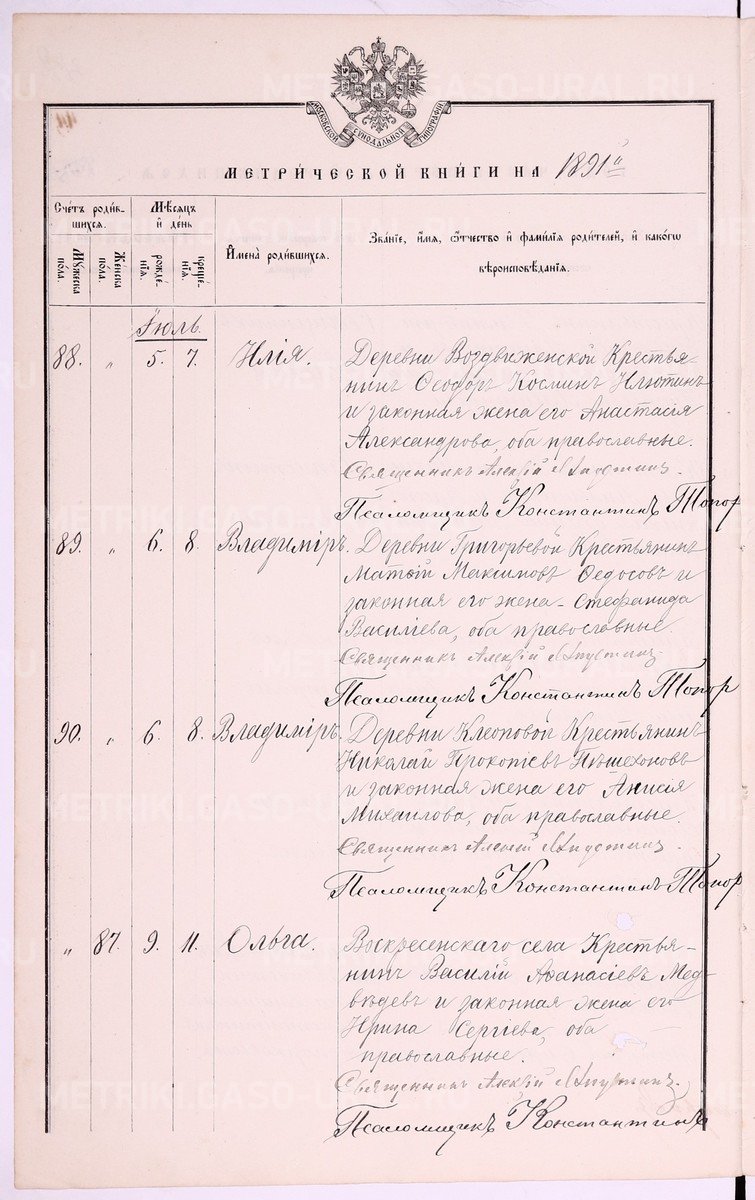 МОСКОВСКОЙ СѴНОДАЛЬНОЙ ТИПОГРАФІИ
МЕТРИ́ЧЕСКОЙ КНИ́ГИ НА 1891 й
Сче́тъ роди́в-
шихся.
Мꙋ́жеска
пола.
Же́нска
пола.
Мѣ́сяцъ
и҆ де́нь
рожде́-
нїѧ.
креще́-
нїѧ.
И҆мена̀ роди́вшихся.
Зва́нїе, и҆́мѧ, ѻ҆́тчество и҆ фами́лїѧ роди́телей, и҆ како́гѡ
вѣроисповѣ́данїѧ.
Іюль.
88. „ 5. 7. Илія. Деревни Воздвиженской Крестья-
нинъ Ѳеодоръ Косминъ Илютинъ
и законная жена его Анастасія
Александрова, оба православные.
Священникъ Алексій
Псаломщикъ Константинъ Топор
89. „ 6. 8. Владиміръ. Деревни Григорьевой Крестьянинъ
Матѳій Максимовъ Ѳедосовъ и
законная его жена Стефанида
Василіева, оба православные
Священникъ Алексій
Псаломщикъ Константинъ Топор
90. „ 6. 8. Владиміръ. Деревни Клеоповой Крестьянинъ
Николай Прокопіевъ Пѣшехоновъ
и законная жена его Анисія
Михаилова, оба православные.
Священникъ Алексій
Псаломщикъ Константинъ Топор
„ 87. 9. 11. Ольга. Воскресенскаго села Крестья-
нинъ Василій Аѳанасіевъ Мед-
вѣдевъ и законная жена его
Ирина Сергіева, оба
православные.
Священникъ Алексій
Псаломщикъ Константинъ
METRIKI.GASO-URAL.RU